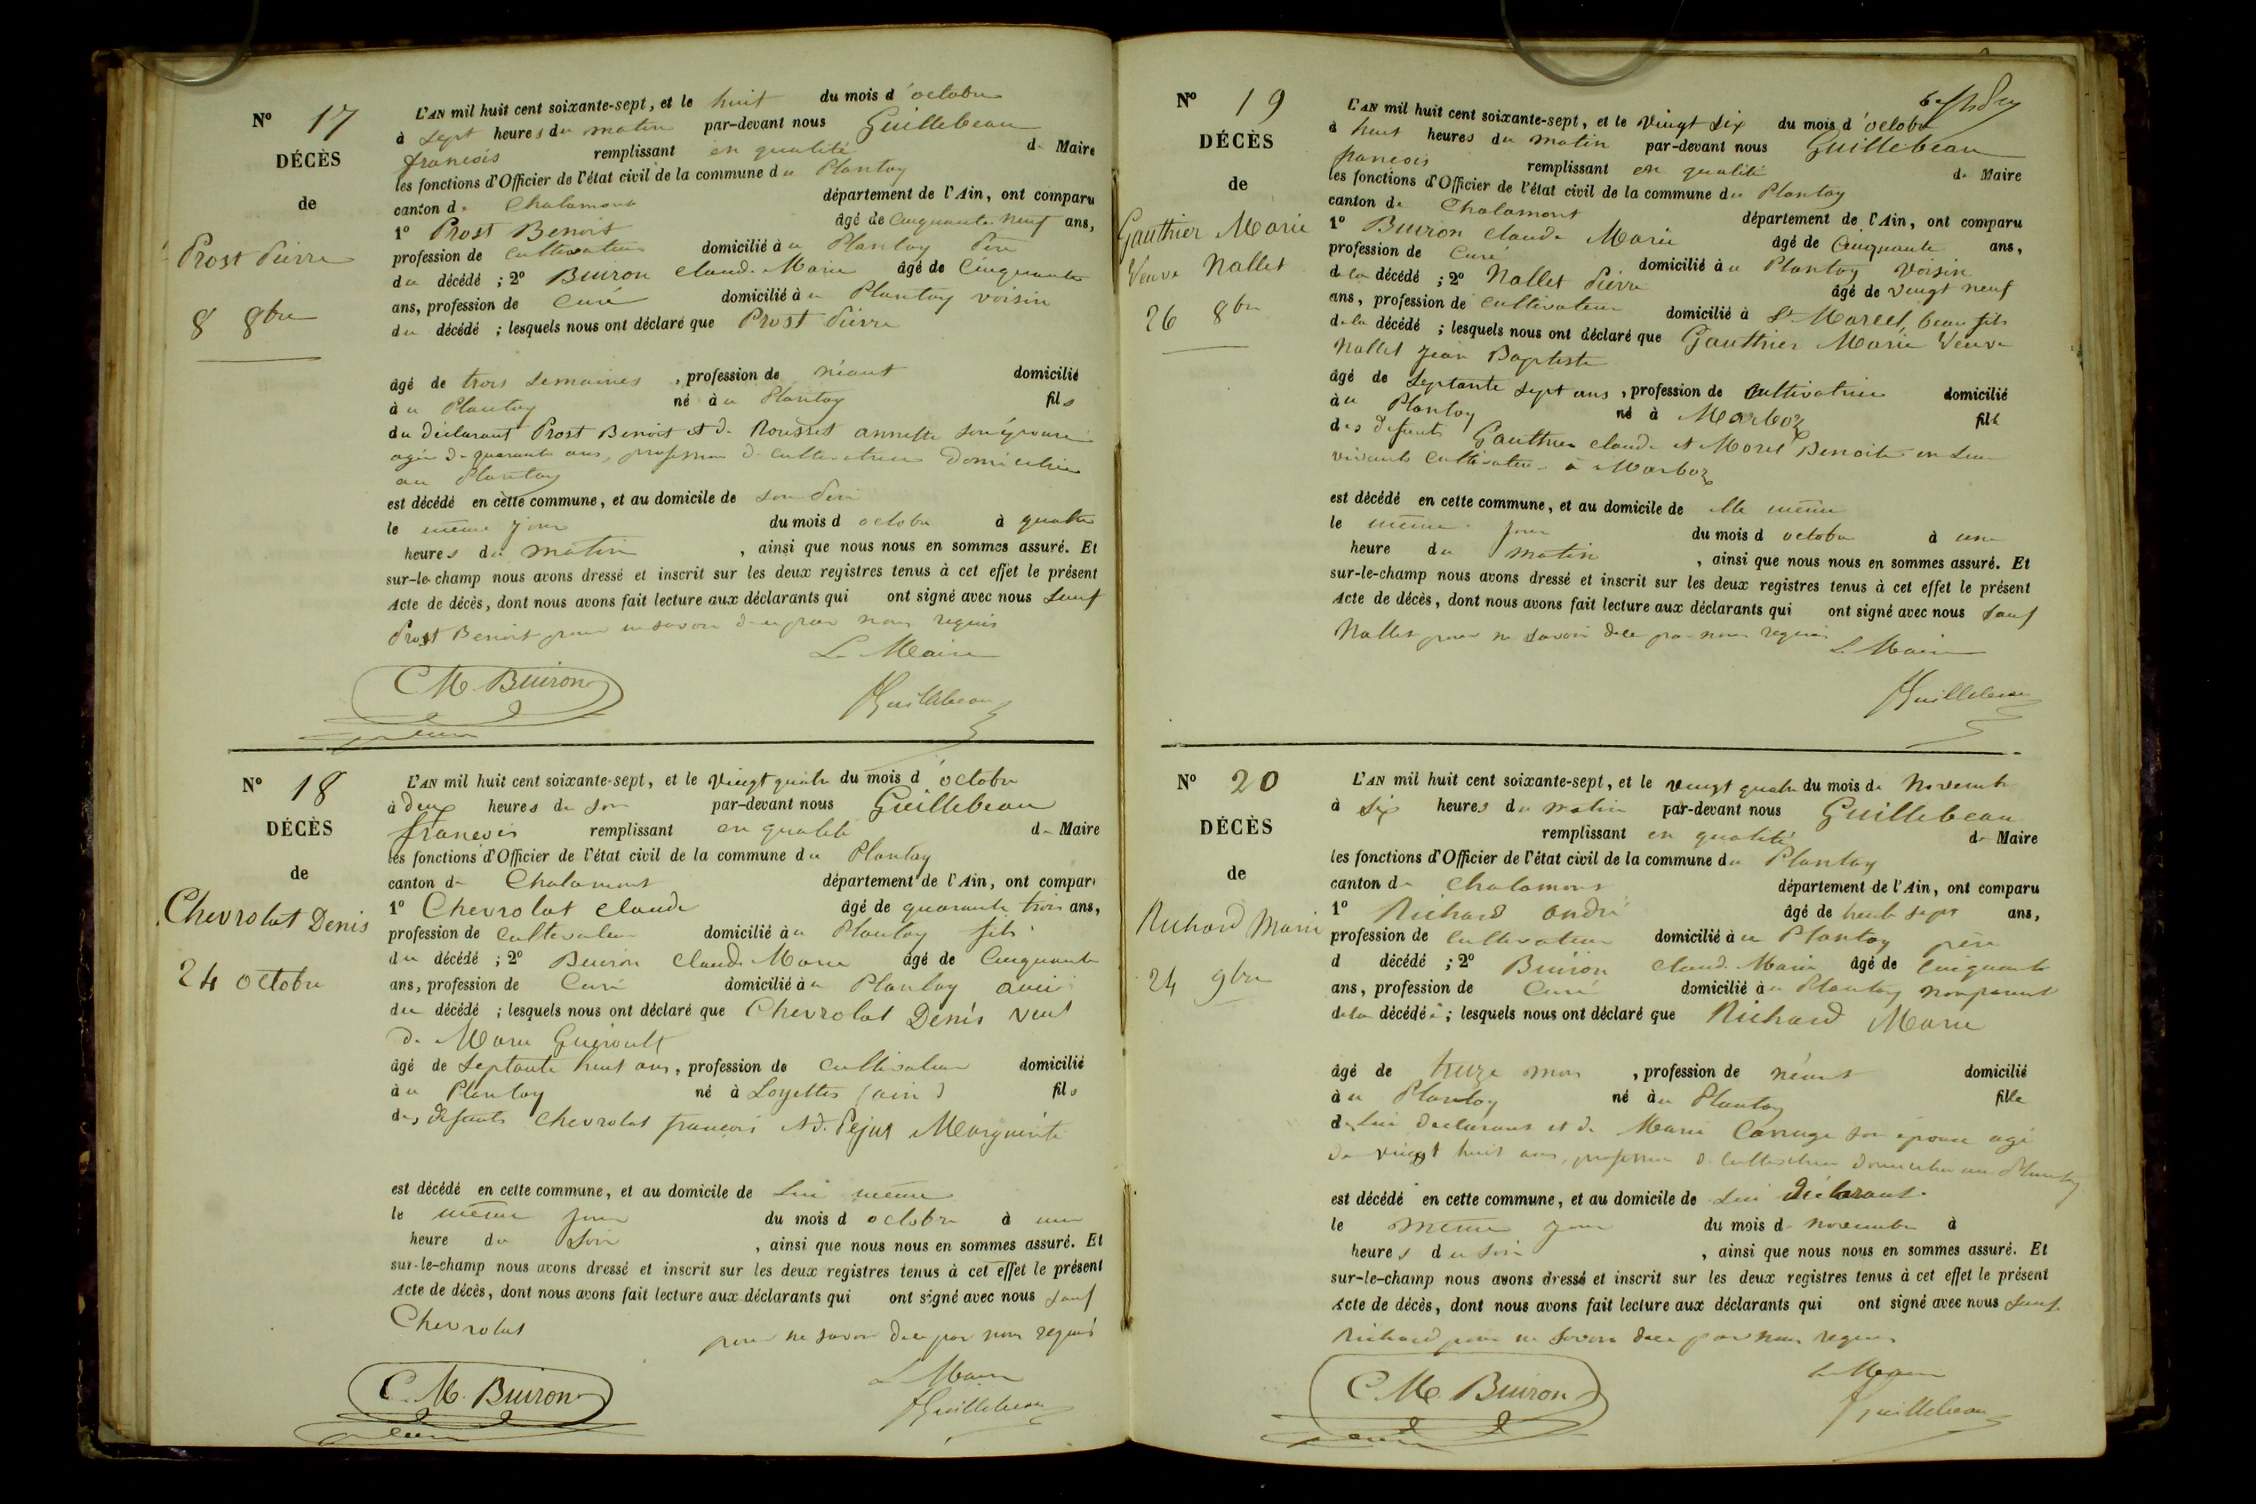 N° 17
DÉCÈS
de
Prost Pierre
8 8bre
L'AN mil huit cent soixante-sept, et le huit du mois d'octobre
à sept heures du matin par-devant nous Guillebeau
françois remplissant en qualité de Maire
les fonctions d'Officier de l'état civil de la commune du Plantay
canton de Chalamont département de l'Ain, ont comparu
1° Prost Benoit âgé de Cinquante neuf ans,
profession de cultivateur domicilié à u Plantay Père
du décédé ; 2° Buiron Claude Marie âgé de Cinquante
ans, profession de Curé domicilié à u Plantay voisin
du décédé ; lesquels nous ont déclaré que Prost Pierre
âgé de trois semaines , profession de néant domicilié
à u Plantay né à u Plantay fils
du déclarant Prost Benoit et de Rousset annette son épouse
agée de quarante ans, profession de cultivatrice domiciliée
au Plantay
est décédé en cette commune, et au domicile de son Père
le même jour du mois d octobre à quatre
heures du matin , ainsi que nous nous en sommes assuré. Et
sur-le-champ nous avons dressé et inscrit sur les deux registres tenus à cet effet le présent
Acte de décès, dont nous avons fait lecture aux déclarants qui ont signé avec nous sauf
Prost Benoit pour ne savoir de ce par nous requis
Le Maire
C M Buiron
fGuillebeau
N° 18
DÉCÈS
de
Chevrolat Denis
24 octobre
L'AN mil huit cent soixante-sept, et le vingt quatre du mois d'octobre
à deux heures du soir par-devant nous Guillebeau
françois remplissant en qualité de Maire
les fonctions d'Officier de l'état civil de la commune du Plantay
canton de Chalamont département de l'Ain, ont comparu
1° Chevrolat Claude âgé de quarante trois ans,
profession de cultivateur domicilié à u Plantay fils
du décédé ; 2° Buiron Claude Marie âgé de Cinquante
ans, profession de Curé domicilié à u Plantay ami
du décédé ; lesquels nous ont déclaré que Chevrolat Denis veuf
de Marie Guéroult
âgé de septante huit ans, profession de cultivateur domicilié
à u Plantay né à Loyettes (ain) fils
des défunts Chevrolat françois et de Pejus Marguerite
est décédé en cette commune, et au domicile de lui même
le même jour du mois d octobre à une
heure du soir , ainsi que nous nous en sommes assuré. Et
sur-le-champ nous avons dressé et inscrit sur les deux registres tenus à cet effet le présent
Acte de décès, dont nous avons fait lecture aux déclarants qui ont signé avec nous sauf
Chevrolat pour ne savoir de ce par nous requis
Le Maire
C. M. Buiron
fGuillebeau
N° 19
DÉCÈS
de
Gauthier Marie
Veuve Nallet
26 8bre
L'AN mil huit cent soixante-sept, et le vingt six du mois d'octobre
à huit heures du matin par-devant nous Guillebeau
françois remplissant en qualité de Maire
les fonctions d'Officier de l'état civil de la commune du Plantay
canton de Chalamont département de l'Ain, ont comparu
1° Buiron Claude Marie âgé de Cinquante ans,
profession de Curé domicilié à u Plantay voisin
de la décédé ; 2° Nallet Pierre âgé de vingt neuf
ans, profession de cultivateur domicilié à St Marcel, beau fils
de la décédé ; lesquels nous ont déclaré que Gauthier Marie Veuve
Nallet Jean Baptiste
âgé de septante sept ans , profession de Cultivatrice domicilié
à u Plantay né à Marboz fille
des défunts Gauthier Claude et Morel Benoite en leur
vivants cultivateurs à Marboz
est décédé en cette commune, et au domicile de elle même
le même jour du mois d octobre à une
heure du matin , ainsi que nous nous en sommes assuré. Et
sur-le-champ nous avons dressé et inscrit sur les deux registres tenus à cet effet le présent
Acte de décès, dont nous avons fait lecture aux déclarants qui ont signé avec nous sauf
Nallet pour ne savoir de ce par nous requis
Le Maire
fGuillebeau
N° 20
DÉCÈS
de
Richard Marie
24 9bre
L'AN mil huit cent soixante-sept, et le vingt quatre du mois de Novembre
à six heures du matin par-devant nous Guillebeau
remplissant en qualité de Maire
les fonctions d'Officier de l'état civil de la commune du Plantay
canton de Chalamont département de l'Ain, ont comparu
1° Richard André âgé de trente sept ans,
profession de cultivateur domicilié à u Plantay père
d décédé ; 2° Buiron Claude Marie âgé de cinquante
ans, profession de Curé domicilié à u Plantay non parent
de la décédée ; lesquels nous ont déclaré que Richard Marie
âgé de treize mois , profession de néant domicilié
à u Plantay né à u Plantay fille
de lui déclarant et de Marie Carruge son épouse agé
de vingt huit ans, profession de cultivatrice domiciliée au Plantay
est décédé en cette commune, et au domicile de lui déclarant.
le même jour du mois de novembre à
heures du soir , ainsi que nous nous en sommes assuré. Et
sur-le-champ nous avons dressé et inscrit sur les deux registres tenus à cet effet le présent
Acte de décès, dont nous avons fait lecture aux déclarants qui ont signé avec nous sauf
Richard pour ne savoir de ce par nous requis
Le Maire
C. M. Buiron
fGuillebeau